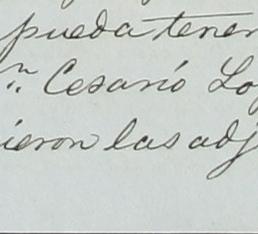 pueda tener
n. Cesario Lo
ieron las adj